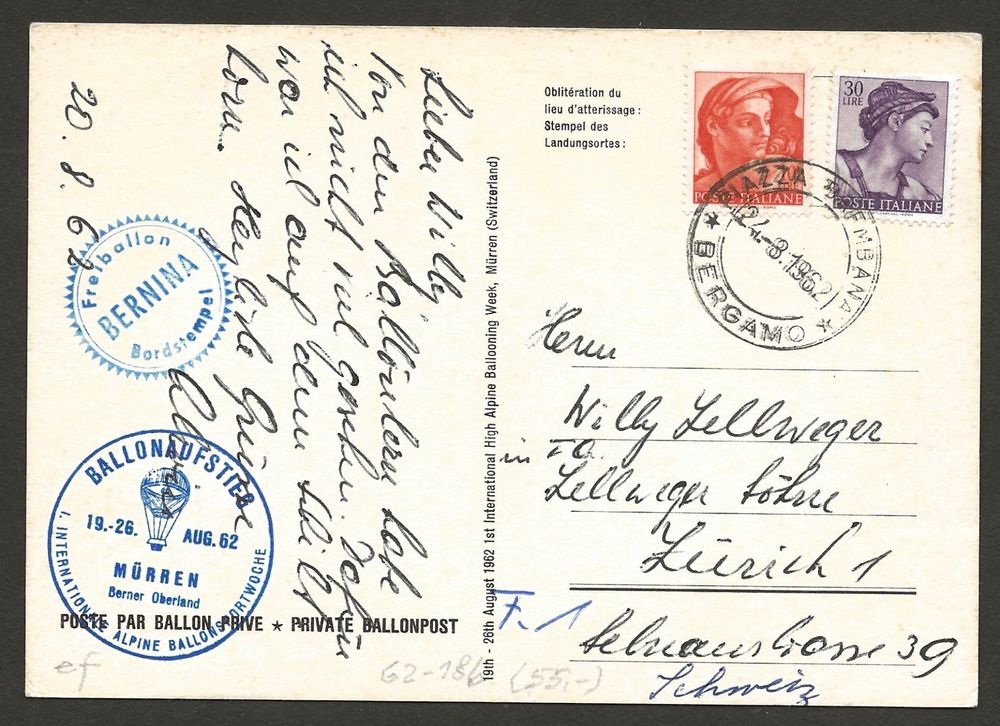 Lieber Willy
Von den Ballönlern habe
ich nicht viel gesehen. Dafür
war ich auf dem Schilt-
horn. Herzliche Grüsse
20. 8. 62
Freiballon
BERNINA
Bordstempel
BALLONAUFSTIEG
19.-26. AUG. 62
MÜRREN
Berner Oberland
1. INTERNATIONALE ALPINE BALLONSPORTWOCHE
POSTE PAR BALLON PRIVÉ ★ PRIVATE BALLONPOST
ef
62-186 (55.-)
19th - 26th August 1962 1st International High Alpine Ballooning Week, Mürren (Switzerland)
Oblitération du
lieu d'atterissage:
Stempel des
Landungsortes:
POSTE ITALIANE
30
LIRE
POSTE ITALIANE
PIAZZA BREMBANA
24-8.1962
★ BERGAMO ★
Herrn
Willy Zellweger
in Fa.
Zellweger Söhne
Zürich 1
F. 1
Selnaustrasse 39
Schweiz